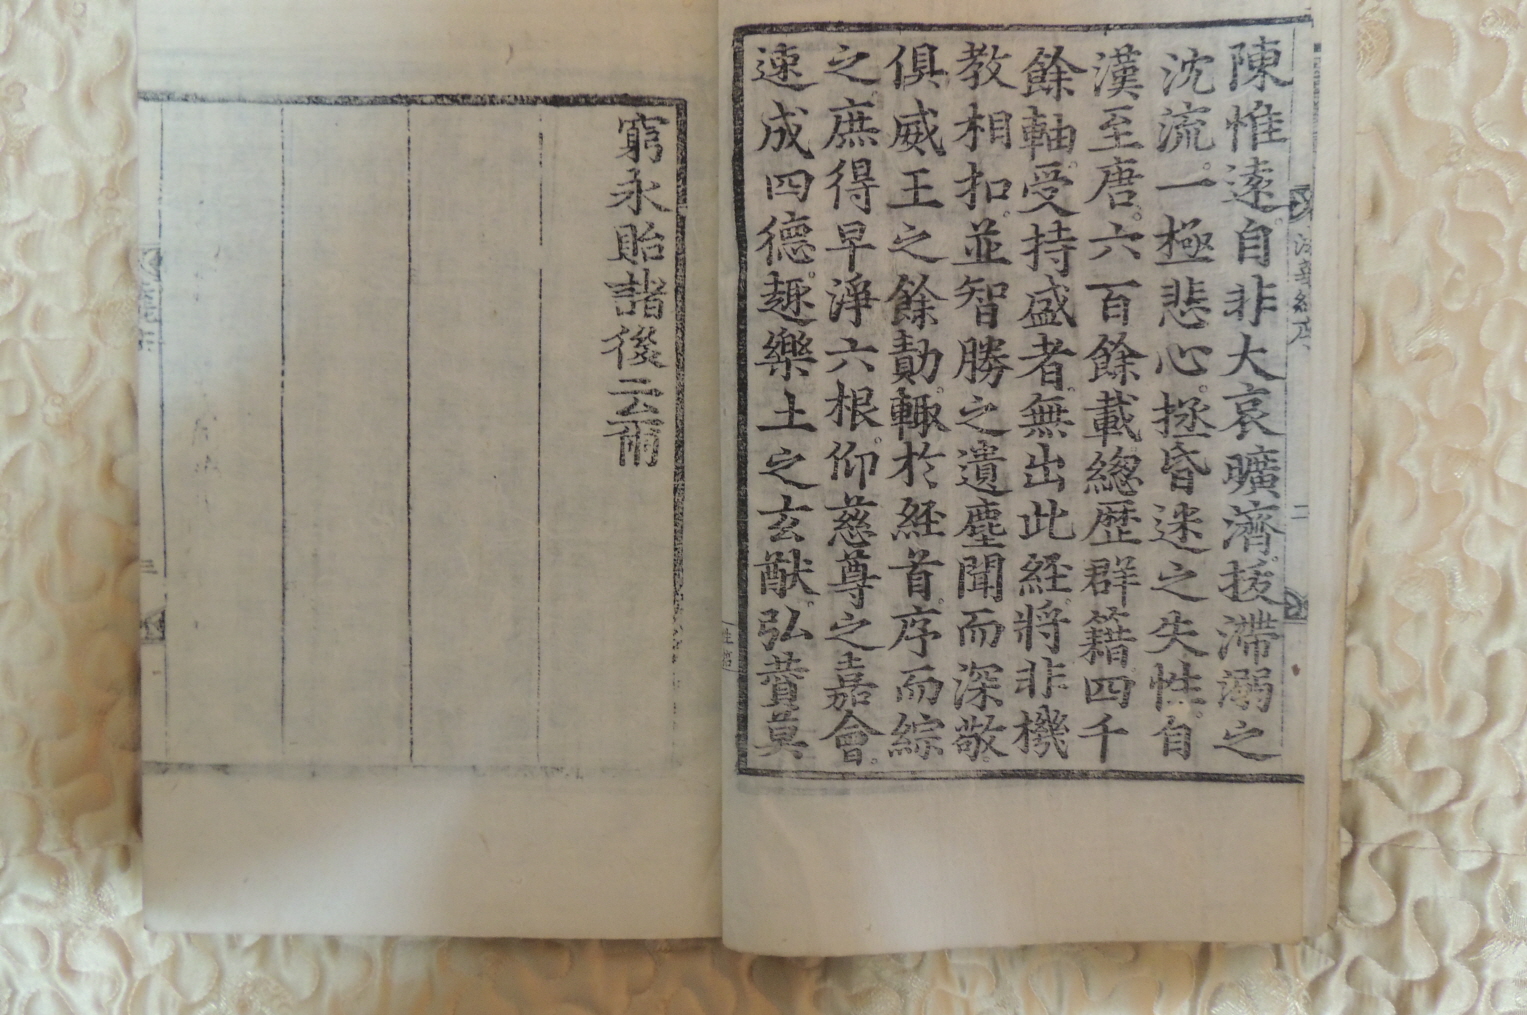 陳惟遠。自非大哀曠濟。拔滯溺之
沈流。一極悲心。拯昏迷之失性。自
漢至唐。六百餘載緫歷群籍。四千
餘軸。受持盛者。無出此經。將非機
教相扣。並智勝之遺塵聞而深敬。
俱威王之餘勣。輙於経首。序而綜
之。庶得早淨六根。仰慈尊之嘉會。
速成四德。趣樂土之玄猷。弘賛莫
窮永貽諸後云爾
法華經序
二
三